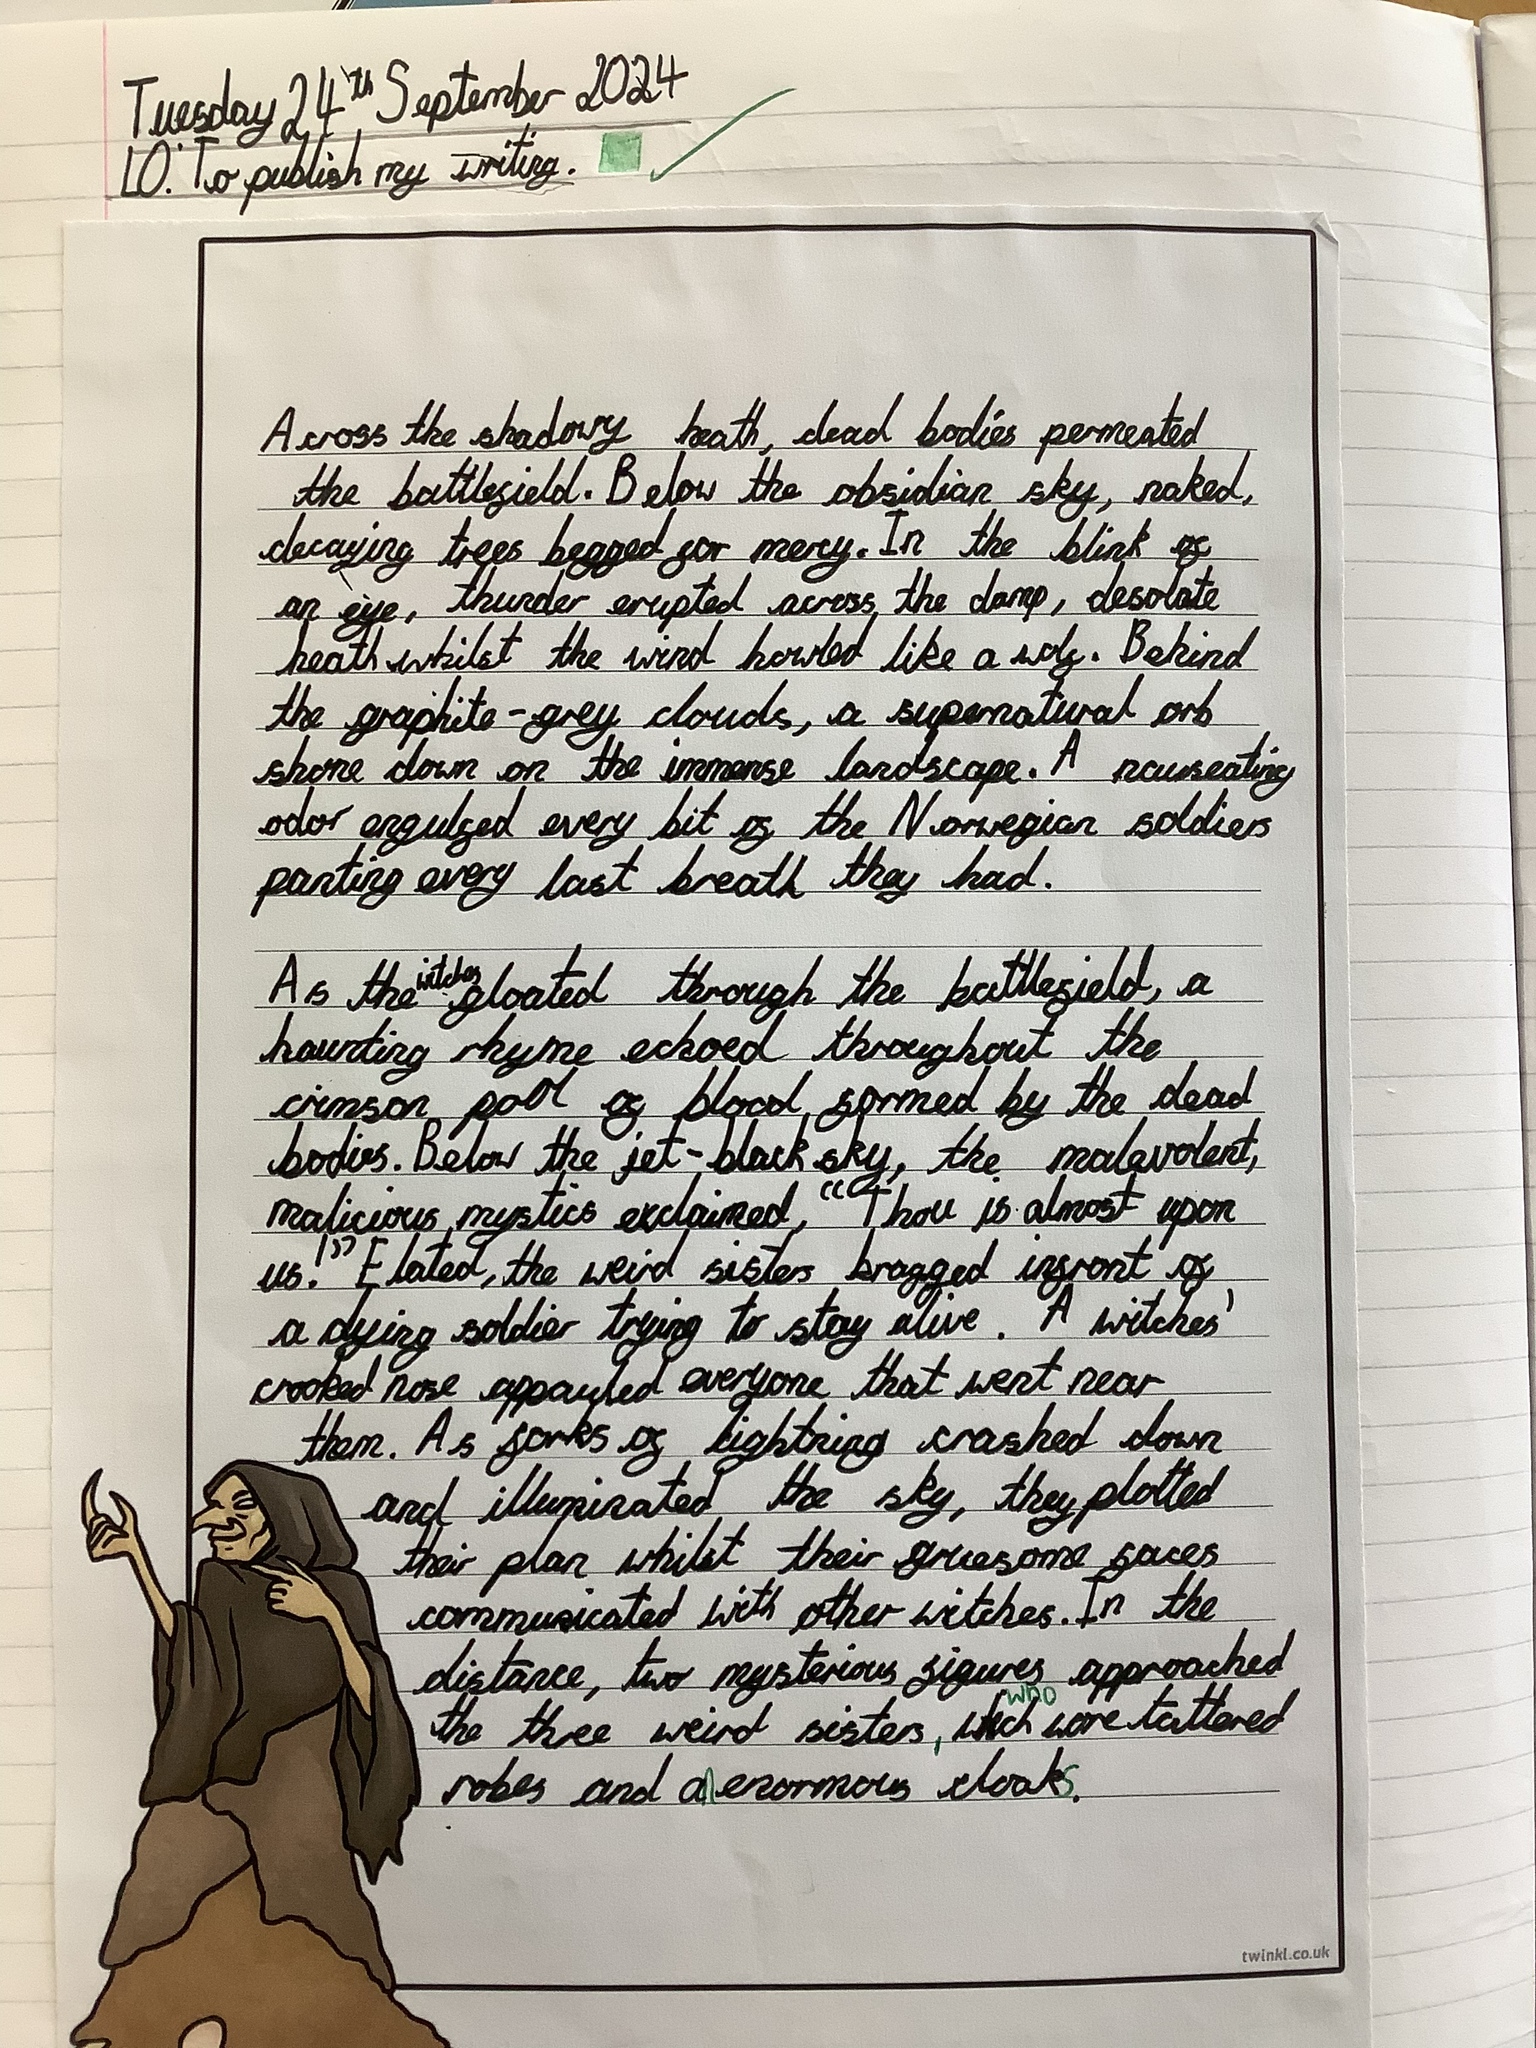 Tuesday 24th September 2024
LO: To publish my writing.
Across the shadowy heath, dead bodies permeated
the battlefield. Below the obsidian sky, naked,
decaying trees begged for mercy. In the blink of
an eye, thunder erupted across the damp, desolate
heath whilst the wind howled like a wolf. Behind
the graphite-grey clouds, a supernatural orb
shone down on the immense landscape. A nauseating
odor engulfed every bit of the Norwegian soldiers
panting every last breath they had.
As the witches gloated through the battlefield, a
haunting rhyme echoed throughout the
crimson pool of blood formed by the dead
bodies. Below the jet-black sky, the malevolent,
malicious mystics exclaimed, "Thou is almost upon
us!" Elated, the weird sisters bragged infront of
a dying soldier trying to stay alive. A witches'
crooked nose appauled everyone that went near
them. As forks of lightning crashed down
and illuminated the sky, they plotted
their plan whilst their gruesome faces
communicated with other witches. In the
distance, two mysterious figures approached
who
the three weird sisters, wore tattered
robes and enormous cloaks.
twinkl.co.uk